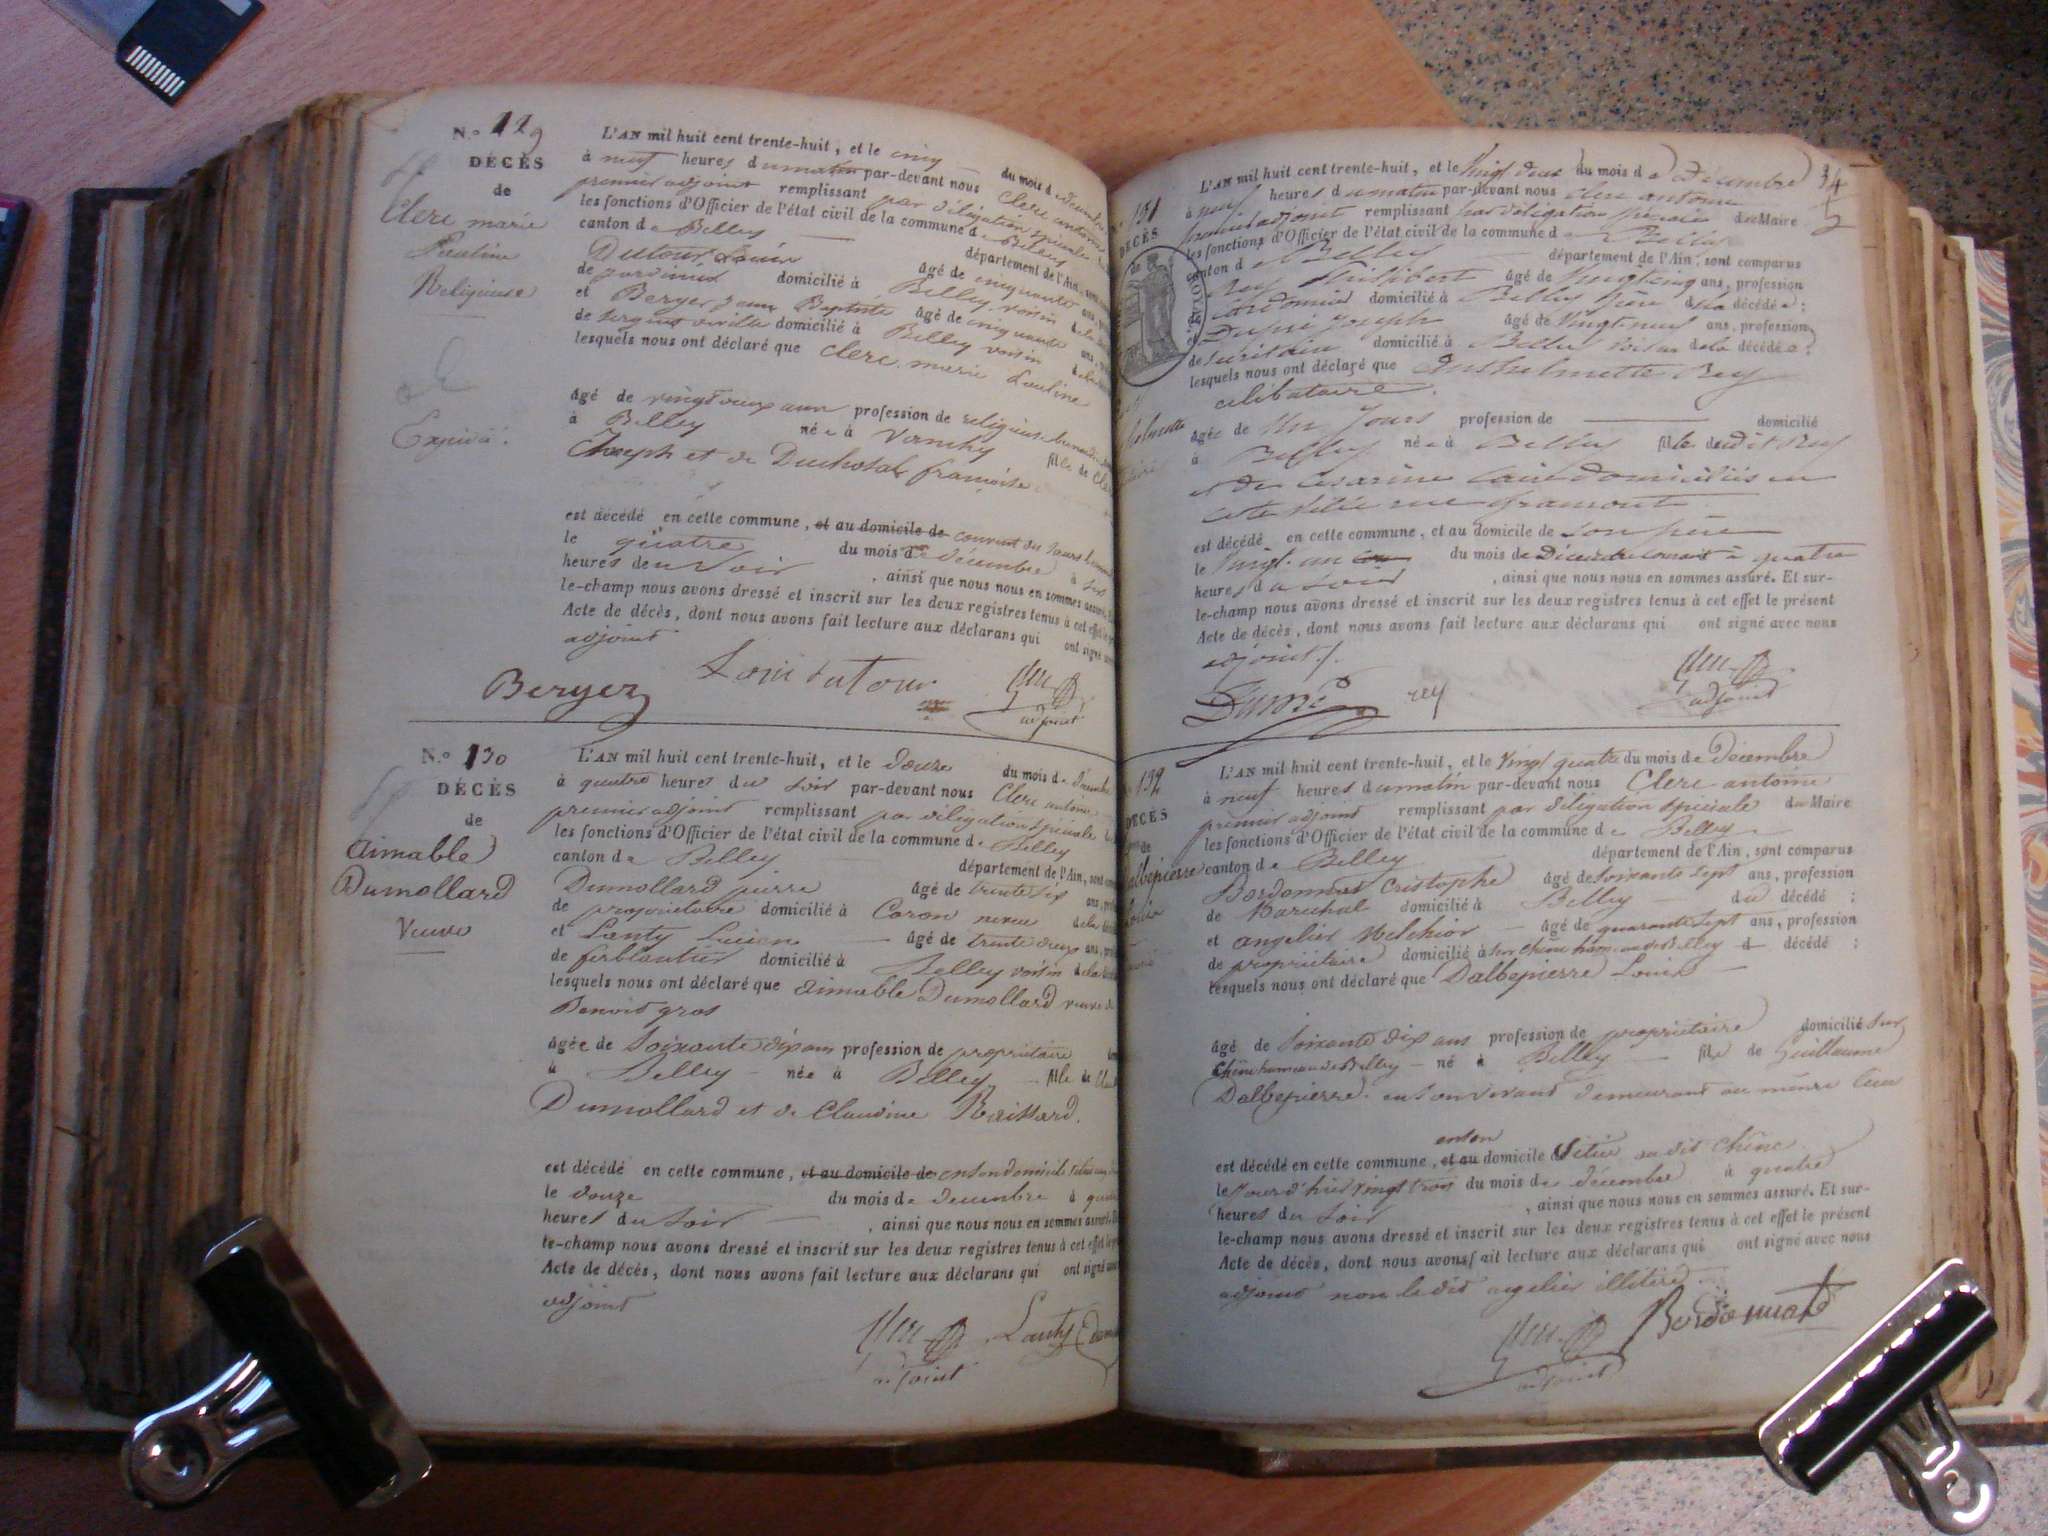 N.º 129
DÉCÈS
de
Clerc marie
Pauline
Religieuse
Expédié.
L'AN mil huit cent trente-huit, et le cinq du mois de décembre
à neuf heures du matin par-devant nous Clerc antoine
premier adjoint remplissant par délégation spéciale
les fonctions d'Officier de l'état civil de la commune de Belley
canton de Belley département de l'Ain, sont
Dutour Louis âgé de cinquante ans,
de domicilié à Belley voisin de la
et Berger Jean Baptiste âgé de cinquante ans,
de sergent de ville domicilié à Belley voisin de la
lesquels nous ont déclaré que Clerc marie Pauline
âgé de vingt deux ans profession de religieuse
à Belley née à fille de
Joseph et de françoise
est décédé en cette commune, et au domicile de couvent des
le quatre du mois de décembre à six
heures du soir, ainsi que nous nous en sommes assuré.
le-champ nous avons dressé et inscrit sur les deux registres tenus à cet effet le
Acte de décès, dont nous avons fait lecture aux déclarans qui ont signé
adjoint
Berger Louis dutour Clerc
adjoint
N.º 130
DÉCÈS
de
Aimable
Dumollard
Veuve
L'AN mil huit cent trente-huit, et le douze du mois de décembre
à quatre heures du soir par-devant nous Clerc antoine
premier adjoint remplissant par délégation spéciale
les fonctions d'Officier de l'état civil de la commune de Belley
canton de Belley département de l'Ain, sont
Dumollard pierre âgé de trente six ans,
de propriétaire domicilié à Coron neveu de la
et Lanty Lucien âgé de trente deux ans,
de ferblantier domicilié à Belley voisin de la
lesquels nous ont déclaré que aimable Dumollard veuve de
Benoit gros
âgée de Soixante dix ans profession de propriétaire
à Belley née à Belley fille de
Dumollard et de Claudine Raissard.
est décédé en cette commune, et au domicile de en son domicile
le douze du mois de décembre à quatre
heures du soir, ainsi que nous nous en sommes assuré.
le-champ nous avons dressé et inscrit sur les deux registres tenus à cet effet le
Acte de décès, dont nous avons fait lecture aux déclarans qui ont signé
adjoint
Clerc Lanty
adjoint
34
131
DÉCÈS
de
L'AN mil huit cent trente-huit, et le Vingt deux du mois de Décembre
à neuf heures du matin par-devant nous clerc antoine
premier adjoint remplissant par délégation spéciale du Maire
les fonctions d'Officier de l'état civil de la commune de Belley
canton de Belley département de l'Ain, sont comparus
Rey Philibert âgé de Vingt cinq ans, profession
de cordonnier domicilié à Belley père de la décédée ;
âgé de Vingt neuf ans, profession
de domicilié à Belley voisin de la décédée ;
lesquels nous ont déclaré que Anthelmette Rey
célibataire.
âgée de Un Jours profession de domicilié
à Belley née à Belley fille du dit Rey
et de Césarine Caire domiciliés en
cette Ville rue gramont
est décédé en cette commune, et au domicile de son père
le Vingt un du mois de Décembre courant à quatre
heures du soir, ainsi que nous nous en sommes assuré. Et sur-
le-champ nous avons dressé et inscrit sur les deux registres tenus à cet effet le présent
Acte de décès, dont nous avons fait lecture aux déclarans qui ont signé avec nous
adjoint.
rey Clerc
adjoint
132
DÉCÈS
de
Dalbepierre
Louis
L'AN mil huit cent trente-huit, et le Vingt quatre du mois de Décembre
à neuf heures du matin par-devant nous Clerc antoine
premier adjoint remplissant par délégation spéciale du Maire
les fonctions d'Officier de l'état civil de la commune de Belley
canton de Belley département de l'Ain, sont comparus
Cristophe âgé de soixante sept ans, profession
de Maréchal domicilié à Belley du décédé ;
et angelier Melchior âgé de quarante sept ans, profession
de propriétaire domicilié à Sur Chêne hameau de Belley d décédé ;
lesquels nous ont déclaré que Dalbepierre Louis
âgé de Soixante dix ans profession de propriétaire domicilié Sur
Chêne hameau de Belley né à Belley fils de Guillaume
Dalbepierre en son vivant demeurant au même lieu
en son
est décédé en cette commune, et au domicile Situé au dit Chêne
le Jour d'hier vingt trois du mois de décembre à quatre
heures du soir, ainsi que nous nous en sommes assuré. Et sur-
le-champ nous avons dressé et inscrit sur les deux registres tenus à cet effet le présent
Acte de décès, dont nous avons fait lecture aux déclarans qui ont signé avec nous
adjoint non le dit angelier illitéré
Clerc
adjoint